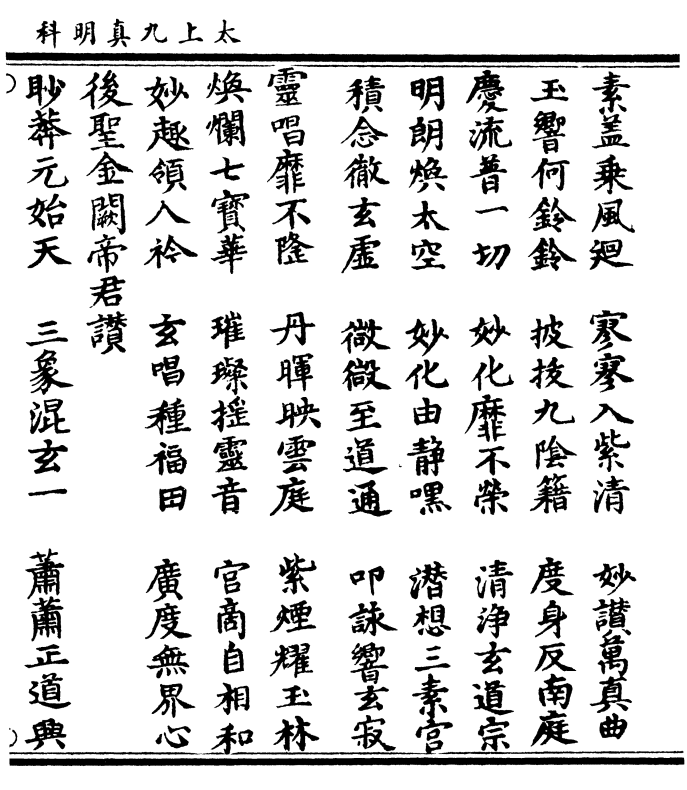 太上九真明科
素蓋乗風廻　寥寥入紫清　妙讃萬真曲
玉響何鈴鈴　披技九陰籍　度身反南庭
慶流普一切　妙化靡不榮　清浄玄道宗
明朗煥太空　妙化由静嘿　潜想三素宮
積念徹玄虛　微微至道通　叩詠響玄寂
靈唱靡不隆　丹暉映雲庭　紫煙耀玉林
煥爛七寶華　璀璨摇靈音　宮商自相和
妙趣領入衿　玄唱種福田　廣度無界心
後聖金闕帝君讃
眇莽元始天　三象混玄一　蕭蕭正道興